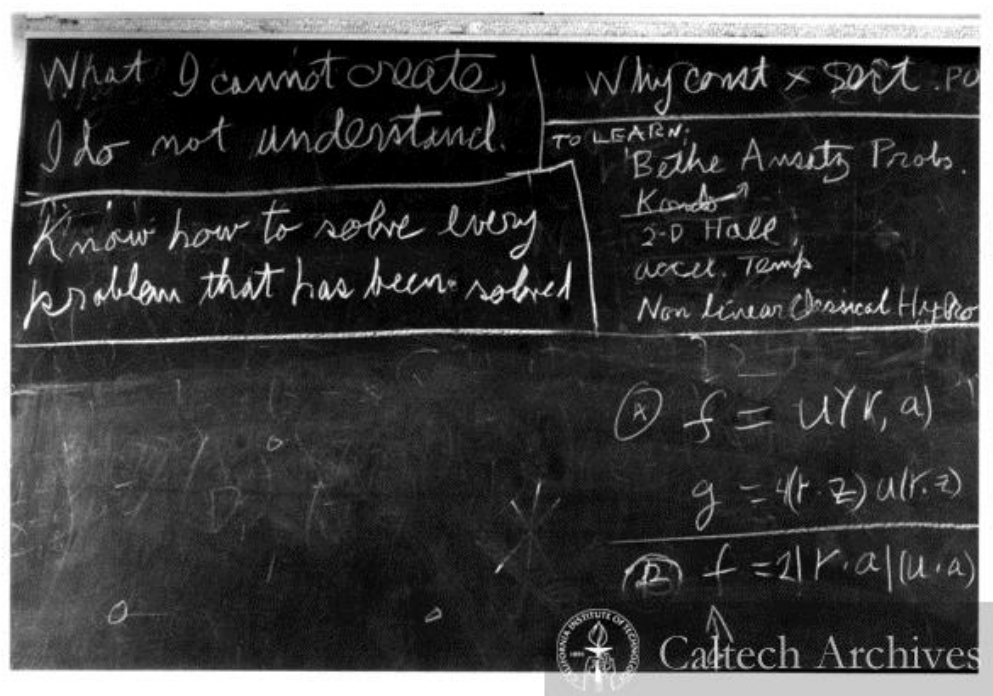 What I cannot create,
I do not understand.
Know how to solve every
problem that has been solved
Why const × sort . PO
TO LEARN:
Bethe Ansatz Probs.
Kondo
2-D Hall
accel. Temp
Non linear Classical Hydro
(A) f = u(r, a)
g = 4(r·z) u(r·z)
f = 2|r·a|(u·a)
CALIFORNIA INSTITUTE OF TECHNOLOGY
1891
Caltech Archives